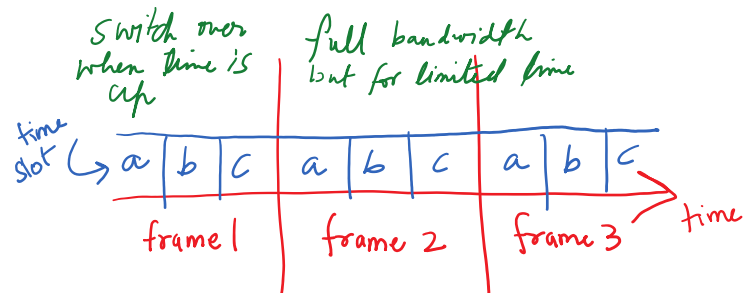 switch over
when time is
up
full bandwidth
but for limited time
time
slot
a b c a b c a b c
time
frame 1 frame 2 frame 3